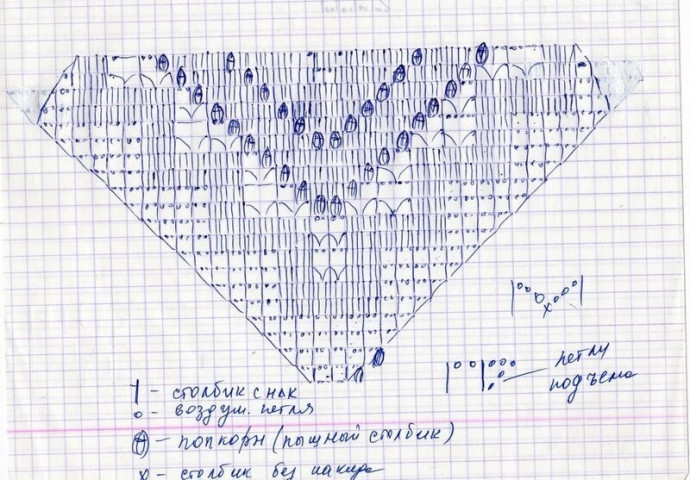 петли
подъема
† - столбик с нак
о - воздуш. петля
- попкорн (пышный столбик)
х - столбик без накида